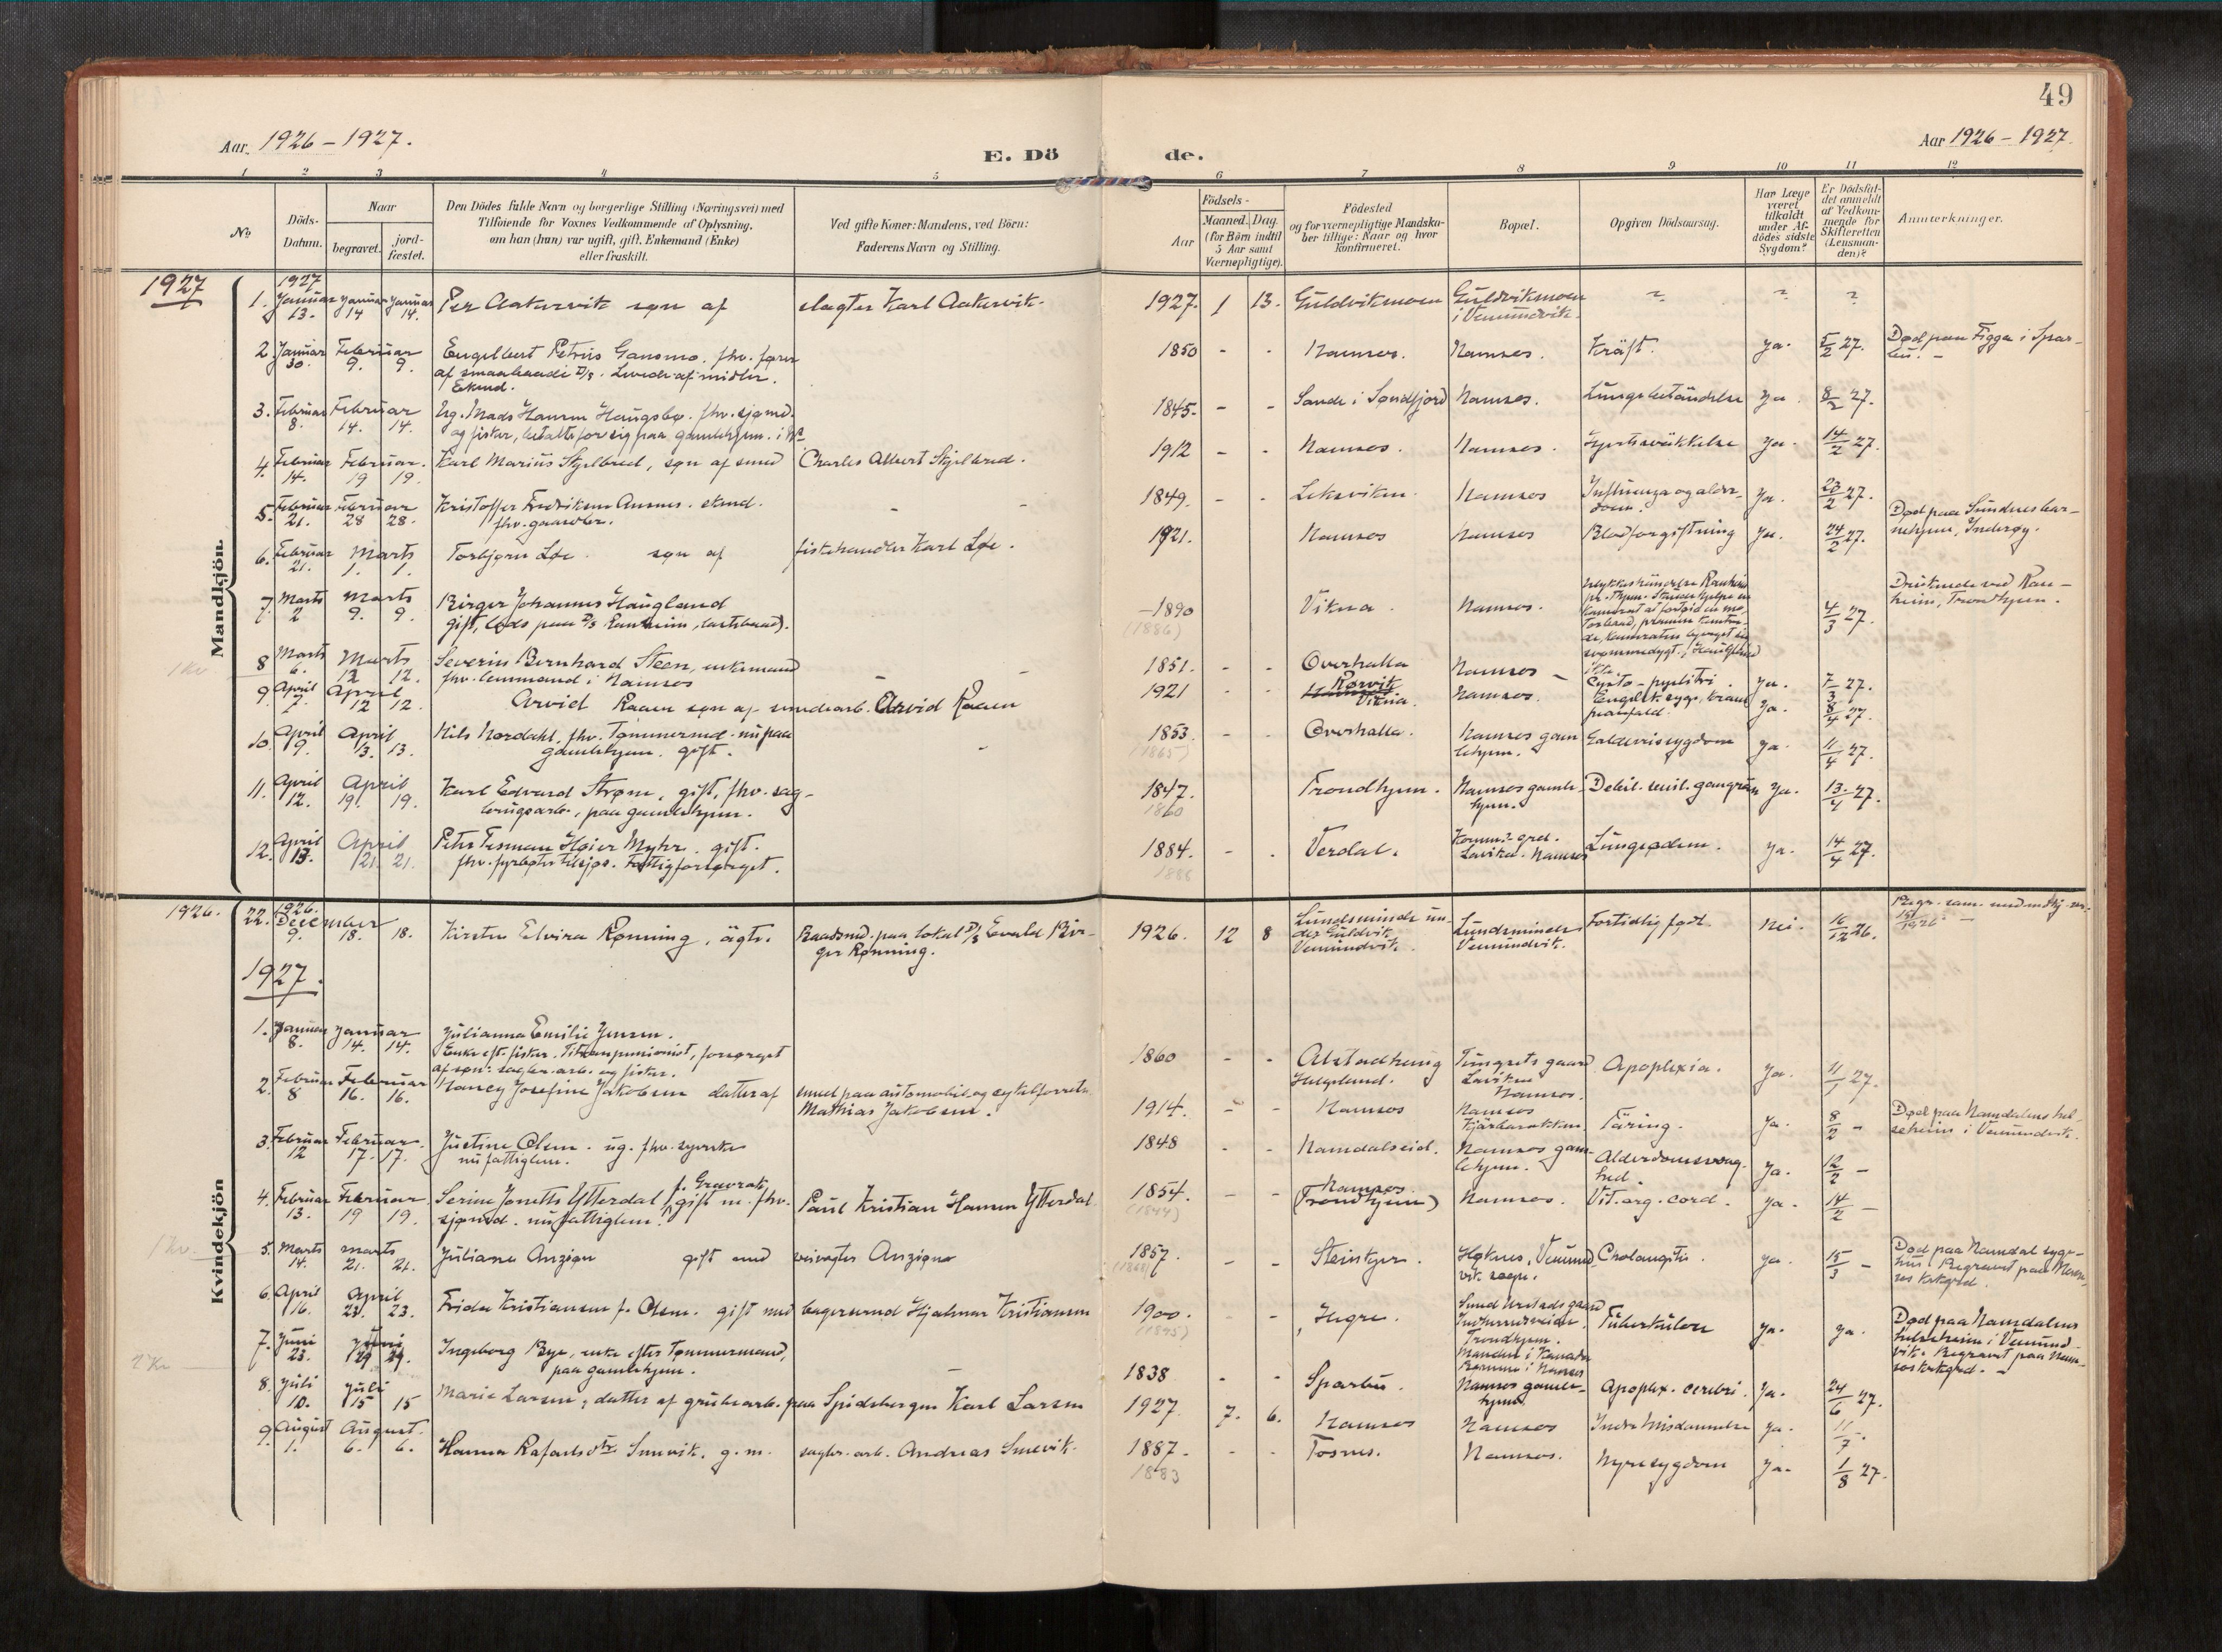 49
Aar 1926 – 1927.
E. Dö de.
Aar 1926 – 1927.
1 2 3 4 5 6 7 8 9 10 11 12
No
Döds-Datum.
Naar
begravet.
jord-fæstet.
Den Dödes fulde Navn og borgerlige Stilling (Næringsvei) med
Tilföiende for Voxnes Vedkommende af Oplysning,
om han (hun) var ugift, gift, Enkemand (Enke)
eller fraskilt.
Ved gifte Koner: Mandens, ved Börn:
Faderens Navn og Stilling.
Aar
Födsels-
Maaned. Dag.
(for Börn indtil
5 Aar samt
Værnepligtige).
Födested
og for værnepligtige Mandska-
ber tillige: Naar og hvor
konfirmeret.
Bopæl.
Opgiven Dödsaarsag.
Har Læge
været
tilkaldt
under Af-
dödes sidste
Sygdom?
Er Dödsfal-
det anmeldt
af Vedkom-
mende for
Skifteretten
(Lensman-
den)?
Anmærkninger.
1927
Mandkjön
1927
1. Januar 13. Januar 14 Januar 14. Per Aakervik søn af slagter Karl Aakervik. 1927. 1 13. Guldvikmoen Guldvikmoen
i Vemundvik. ? ? ?
2. Januar 30. Februar 9. 9. Engelbert Petrus Gansmo. fhv. fører
af smaabaade D/s. Levede af midler.
Ekmd. 1850 - - Namsos. Namsos. Kräft. Ja. 5/2 27. Død paa Figga i Spar-
bu. –
3. Februar 8. Februar 14. 14. Ug. Mads Hansen Haugsbø. fhv. sjømd.
og fisker, betalte for sig paa gamlehjem. i 1845. - - Sande i Søndfjord Namsos. Lungebetändelse Ja. 8/2 27.
4. Februar 14. Februar. 19 19. Karl Marius Skjelbred, søn af smed Charles Albert Skjelbred. 1912 - - Namsos. Namsos. Hjertesväkkelse Ja. 14/2 27.
5. Februar 21. Februar 28 28. Kristoffer Fredriksen Aunes. ekmd.
fhv. gaardbr. - - 1849. - - Leksviken. Namsos Influenza og alder-
dom. Ja. 23/2 27.
6. Februar 21. Marts 1. 1. Torbjørn Løe søn af fiskehandler Karl Løe. 1921. Namsos Namsos Blodforgiftning Ja. 24/2 27. Død paa Sundnes bar-
nehjem, Inderøy.
7. Marts 2 Marts 9. 9. Birger Johannes Haugland
gift, lods paa D/s Ranheim, lastebaad). 1890
(1886) Vikna. Namsos. 4/3 27. Druknede ved Ran-
heim, Trondhjem.
1 kv
8 Marts 6. Marts 12 12. Severin Bernhard Steen, enkemand
fhv. lensmand i Namsos - - 1851. - - Overhalla Namsos – Cysto-pyelitis. Ja. 7/3 27.
9. April 7. April 12 12. Arvid Raaen søn af smedearb. Arvid Raaen 1921 - - Rørvik
Vikna. Namsos. Engelsk syge, kram
Ja. 8/4 27.
10. April 9. April 13. 13. Nils Nordahl, fhv. Tømmermd. nu paa
gamlehjem. gift. - 1853
(1865) - - Overhalla. Namsos gam
lehjem. Galdeveissygdom Ja. 11/4 27.
11. April 12. April 19. 19. Karl Edvard Strøm, gift, fhv. sag-
brugsarb., paa gamlehjem. 1847.
1860 Trondhjem. Namsos gamle-
hjem. Debil. senil. gangrän Ja. 13/4 27.
12. April 13. April 21. 21. Peter Tesman Høier Myhr. gift.
fhv. fyrbøter tilsjøs. Fattigforsørget. 1884.
1886 - - Verdal. Komm. grd.
Laviken. Namsos Lungeødem. Ja. 14/4 27.
Kvindekjön
1926. 22. 1926. December 9. 18. 18. Kirsten Elvira Rønning, ägte. Baadsmd. paa lokal D/s Evald Bir-
ger Rønning. 1926. 12 8 Lundsminde un-
der Guldvik
Vemundvik. Lundsminde
Vemundvik. For tidlig født. Nei. 16/12 26.
1927.
1. Januar 8. Januar 14. 14. Julianna Emilie Jensen.
Enke eft. fisker. forsørget
af søn: sagbr. arb. og fisker. 1860 - - Alstadhaug
Helgeland. Tingrets gaard
Laviken
Namsos. Apoplexia. Ja. 11/1 27.
2. Februar 8 Februar 16. 16. Nancy Josefine Jakobsen datter af smed paa automobil og cykelforretn.
Mathias Jakobsen. 1914. - - Namsos Namsos
Kjärbarakken Täring. Ja. 8/2 – Død paa Namdalens hel-
seheim i Vemundvik.
3. Februar 12 Februar. 17. 17. Justine Olsen. ug. fhv. syerske
nu fattiglem. 1848 - - Namdalseid. Namsos gam-
lehjem. Alderdomssvag-
hed. Ja. 12/2 –
4. Februar 13. Februar. 19 19. Serine Jonette Ytterdal f. Gravrok, gift m. fhv.
sjømd. nu fattiglem. Paul Kristian Hansen Ytterdal. 1854.
(1844) - - Namsos.
(Trondhjem) Namsos. Vit. org. cord. Ja. 14/2 –
1 Kv.
5. Marts 14. Marts 21. 21. Juliane Anzjøn gift med veivogter Anzjøn 1857. - - Steinkjer. Høknes, Vemund
vik sogn. Cholangitis. Ja. 15/3 – Død paa Namdal syge-
hus. Begravet paa Nam-
sos kirkegrd.
6. April 16. April 23. 23. Frida Kristiansen f. Olsen. gift med bagersvend Hjalmar Kristiansen 1900.
(1895) - - Hegra. Trondhjem.
Manden i Kanada
Namsos Tuberkulose Ja. Ja. Død paa Namdalens
helseheim i Vemund-
vik. Begravet paa Nam-
sos kirkegrd. –
2 Kv
7. Juni 23. Juni 29 29. Ingeborg Bye, enke efter Tømmermand,
paa gamlehjem. – 1838 - - Sparbu. Namsos gamle-
hjem. Apoplex. cerebri. Ja. 24/6 27.
8. Juli 10. Juli 15 15 Marie Larsen, datter af grubearb. paa Spidsbergen Karl Larsen 1927 7. 6. Namsos Namsos Indre misdannelse Ja. 11/7 -.
9. August 1. August. 6. 6. Hanna Rafaelsdtr. Smevik. g. m. sagbr. arb. Andreas Smevik. 1887.
1883 - - Fosnes. Namsos. Nyresygdom Ja. 1/8 27.